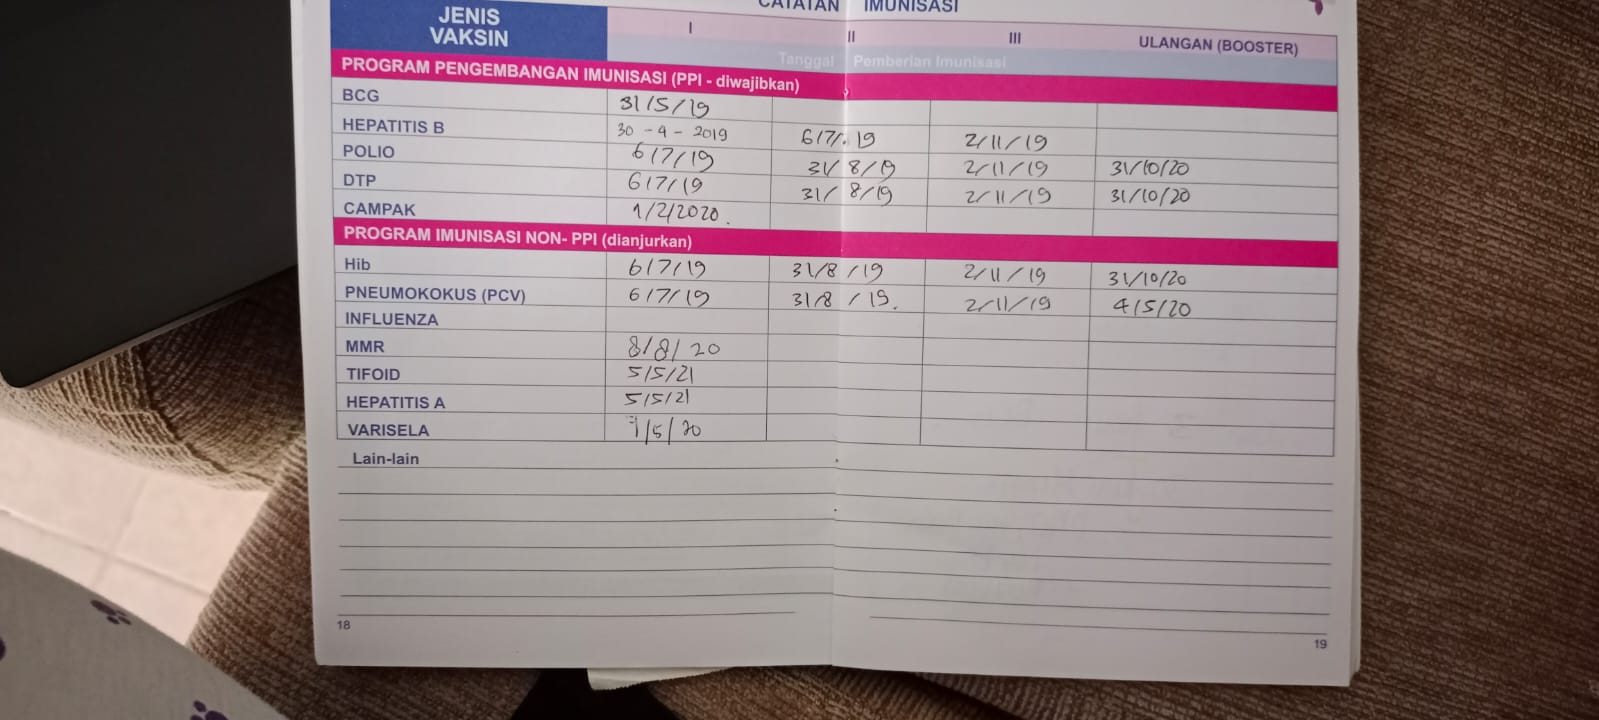 CATATAN IMUNISASI
JENIS VAKSIN I II III ULANGAN (BOOSTER)
Tanggal Pemberian Imunisasi
PROGRAM PENGEMBANGAN IMUNISASI (PPI - diwajibkan)
BCG 31/5/19
HEPATITIS B 30 - 4 - 2019 6/7/19 2/11/19
POLIO 6/7/19 31/8/19 2/11/19 31/10/20
DTP 6/7/19 31/8/19 2/11/19 31/10/20
CAMPAK 1/2/2020.
PROGRAM IMUNISASI NON- PPI (dianjurkan)
Hib 6/7/19 31/8/19 2/11/19 31/10/20
PNEUMOKOKUS (PCV) 6/7/19 31/8/19. 2/11/19 4/5/20
INFLUENZA
MMR 8/8/20
TIFOID 5/5/21
HEPATITIS A 5/5/21
VARISELA
Lain-lain
18 19